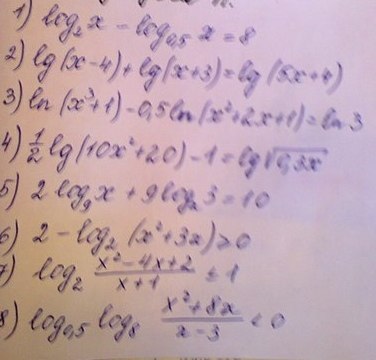 1) log₂x − log₀,₅x = 8
2) lg(x−4)+lg(x+3)=lg(5x+4)
3) ln(x³+1)−0,5ln(x²+2x+1)=ln3
4) ½lg(10x²+20)−1=lg√(0,3x)
5) 2log₉x + 9logₓ3=10
6) 2−log₂(x²+3x)≥0
7) log₂ (x²−4x+2)/(x+1) ≤1
8) log₀,₅ log₈ (x²+8x)/(x−3) <0